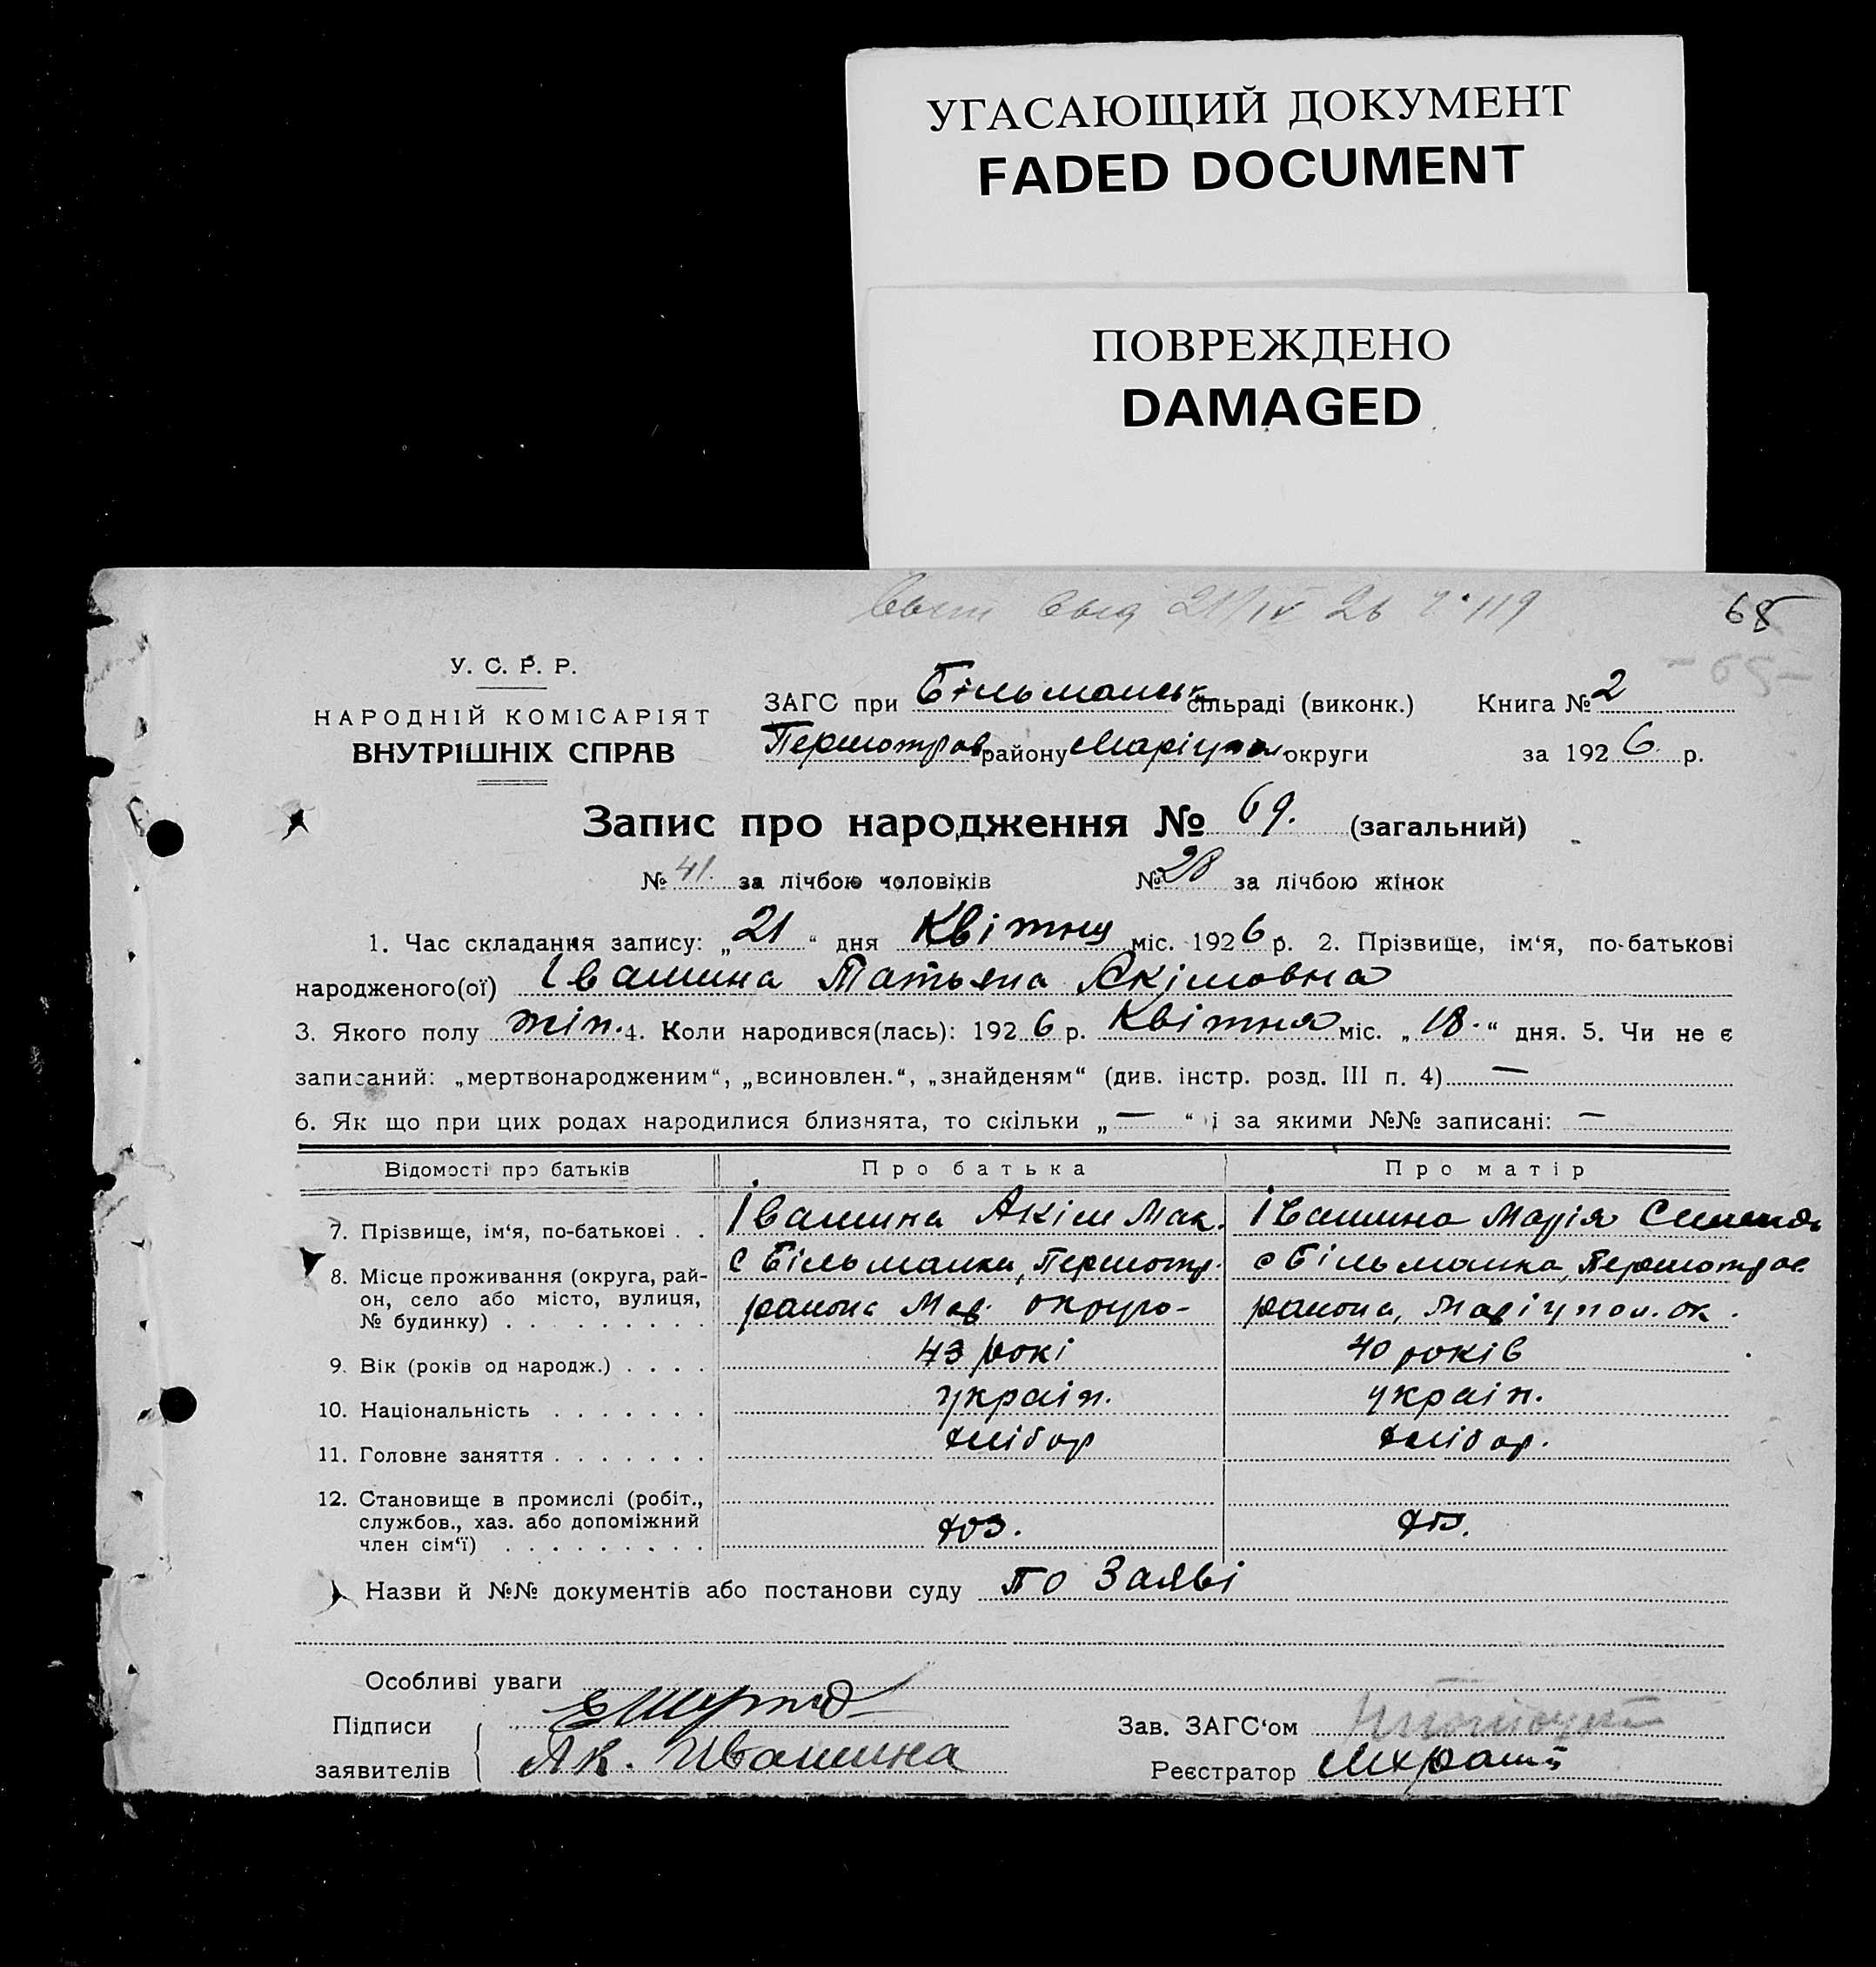 УГАСАЮЩИЙ ДОКУМЕНТ
FADED DOCUMENT
ПОВРЕЖДЕНО
DAMAGED
21/IV 26 119
68
У. С. Р. Р.
НАРОДНІЙ КОМІСАРІЯТ
ВНУТРІШНІХ СПРАВ
ЗАГС при Більманськ сільраді (виконк.) Книга № 2
Першотрав району Маріупол округи за 1926 р.
Запис про народження № 69. (загальний)
№ 41. за лічбою чоловіків № 28 за лічбою жінок
1. Час складання запису: „21“ дня Квітня міс. 1926 р. 2. Прізвище, ім‘я, по-батькові
народженого(ої) Івашина Татьяна Якімовна
3. Якого полу жін. 4. Коли народився(лась): 1926 р. Квітня міс. „18.“ дня. 5. Чи не є
записаний: „мертвонародженим“, „всиновлен.“, „знайденям“ (див. інстр. розд. III п. 4) —
6. Як що при цих родах народилися близнята, то скільки „—“ і за якими №№ записані: —
Відомості про батьків Про батька Про матір
7. Прізвище, ім‘я, по-батькові . . Івашина Акім Мак. Івашина Марія
8. Місце проживання (округа, рай- с Більманка, Першотр. с Більманка, Першотрав
он, село або місто, вулиця, района Мар. округо- района, Маріупол. ок.
№ будинку) . . . . . . . . .
9. Вік (років од народж.) . . . . 43 рокі 40 років
10. Національність . . . . . . . україн. україн.
11. Головне заняття . . . . . . . хлібор хлібор.
12. Становище в промислі (робіт.,
службов., хаз. або допоміжний хоз. хоз.
член сім‘ї) . . . . . . . . .
Назви й №№ документів або постанови суду по Заяві
Особливі уваги
Підписи
Зав. ЗАГС‘ом
заявителів Ак. Ивашина
Реєстратор